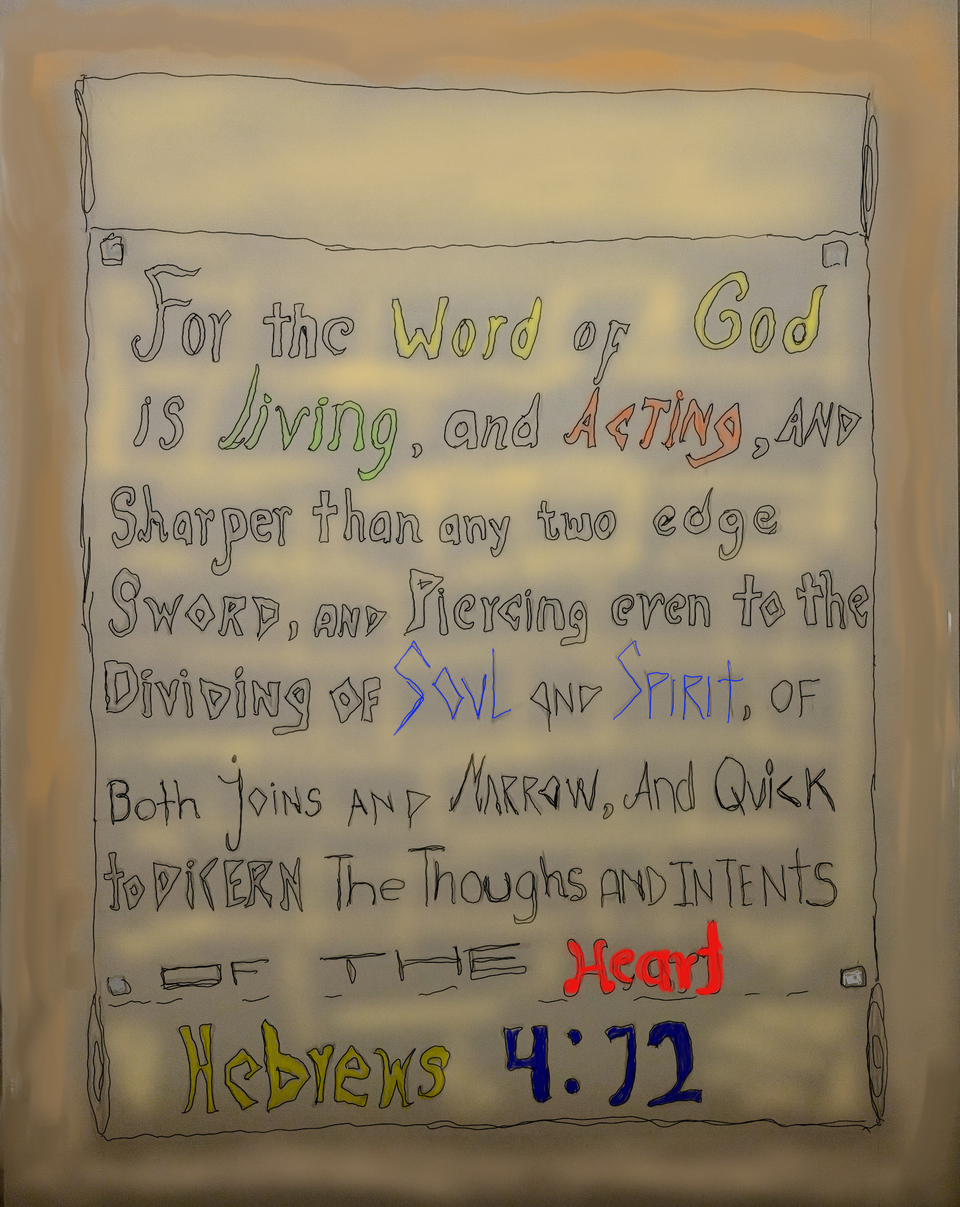 For the Word of God
is living, and ACTiNg, AND
Sharper than any two edge
SWORD, AND Piercing even to the
DiviDiNg OF SOUL AND SPIRIT, OF
Both joins AND MARROW, And Quick
to DiCERN The Thoughs AND INTENTS
OF THE Heart
Hebrews 4:12